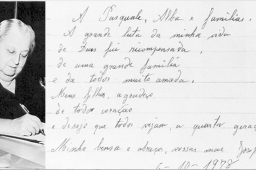 A Pasquale, Alba e familia.
A grande luta da minha vida
de Deus foi recompensada,
de uma grande familia
e da todos muito amada.
Meus filhos, agradeço
de todo coração
e desejo que todos vejam, a quarta geração
Minha bensa e abraço, vossa mae
6-10-1978